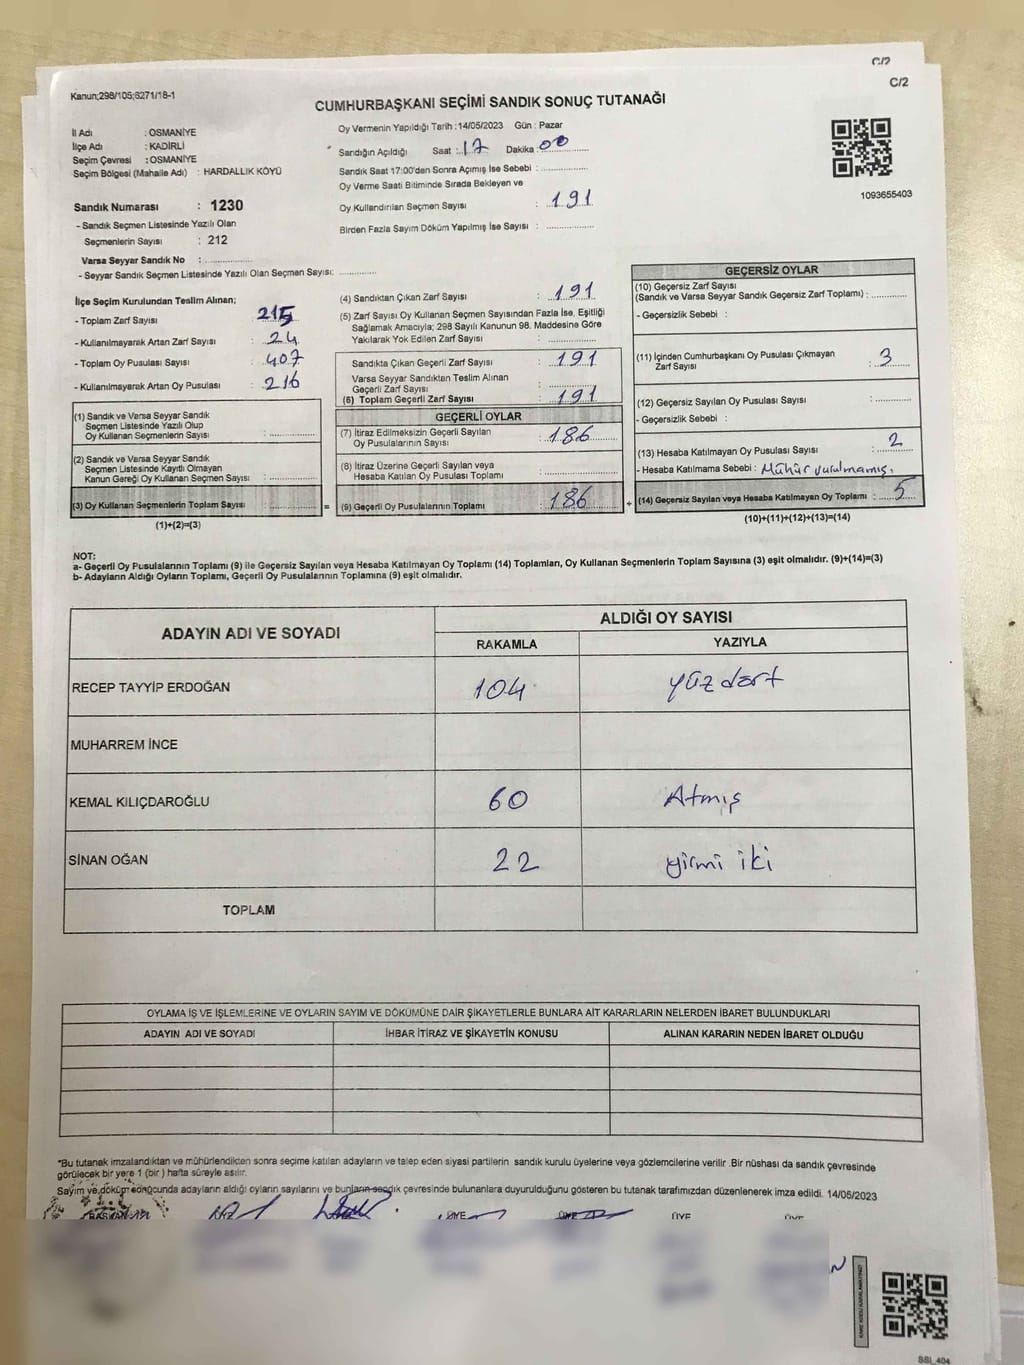 C/2
C/2
Kanun;298/105;6271/18-1
CUMHURBAŞKANI SEÇİMİ SANDIK SONUÇ TUTANAĞI
İl Adı : OSMANİYE
İlçe Adı : KADİRLİ
Seçim Çevresi : OSMANİYE
Seçim Bölgesi (Mahalle Adı) : HARDALLIK KÖYÜ
Sandık Numarası : 1230
- Sandık Seçmen Listesinde Yazılı Olan
Seçmenlerin Sayısı : 212
Varsa Seyyar Sandık No :
- Seyyar Sandık Seçmen Listesinde Yazılı Olan Seçmen Sayısı:
Oy Vermenin Yapıldığı Tarih :14/05/2023 Gün : Pazar
Sandığın Açıldığı Saat : 17 Dakika : 00
Sandık Saat 17:00'dan Sonra Açımış İse Sebebi :
Oy Verme Saati Bitiminde Sırada Bekleyen ve
Oy Kullandırılan Seçmen Sayısı : 191
Birden Fazla Sayım Döküm Yapılmış İse Sayısı :
1093655403
İlçe Seçim Kurulundan Teslim Alınan;
- Toplam Zarf Sayısı : 215
- Kullanılmayarak Artan Zarf Sayısı : 24
- Toplam Oy Pusulası Sayısı : 407
- Kullanılmayarak Artan Oy Pusulası : 216
(1) Sandık ve Varsa Seyyar Sandık
Seçmen Listesinde Yazılı Olup
Oy Kullanan Seçmenlerin Sayısı :
(2) Sandık ve Varsa Seyyar Sandık
Seçmen Listesinde Kayıtlı Olmayan
Kanun Gereği Oy Kullanan Seçmen Sayısı :
(3) Oy Kullanan Seçmenlerin Toplam Sayısı :
(1)+(2)=(3)
(4) Sandıktan Çıkan Zarf Sayısı : 191
(5) Zarf Sayısı Oy Kullanan Seçmen Sayısından Fazla İse, Eşitliği
Sağlamak Amacıyla; 298 Sayılı Kanunun 98. Maddesine Göre
Yakılarak Yok Edilen Zarf Sayısı :
Sandıkta Çıkan Geçerli Zarf Sayısı : 191
Varsa Seyyar Sandıktan Teslim Alınan
Geçerli Zarf Sayısı :
(6) Toplam Geçerli Zarf Sayısı : 191
GEÇERLİ OYLAR
(7) İtiraz Edilmeksizin Geçerli Sayılan
Oy Pusulalarının Sayısı : 186
(8) İtiraz Üzerine Geçerli Sayılan veya
Hesaba Katılan Oy Pusulası Toplamı :
= (9) Geçerli Oy Pusulalarının Toplamı : 186 +
GEÇERSİZ OYLAR
(10) Geçersiz Zarf Sayısı
(Sandık ve Varsa Seyyar Sandık Geçersiz Zarf Toplamı) :
- Geçersizlik Sebebi :
(11) İçinden Cumhurbaşkanı Oy Pusulası Çıkmayan
Zarf Sayısı : 3
(12) Geçersiz Sayılan Oy Pusulası Sayısı :
- Geçersizlik Sebebi :
(13) Hesaba Katılmayan Oy Pusulası Sayısı : 2
- Hesaba Katılmama Sebebi : Mühür vurulmamış.
(14) Geçersiz Sayılan veya Hesaba Katılmayan Oy Toplamı : 5
(10)+(11)+(12)+(13)=(14)
NOT:
a- Geçerli Oy Pusulalarının Toplamı (9) ile Geçersiz Sayılan veya Hesaba Katılmayan Oy Toplamı (14) Toplamları, Oy Kullanan Seçmenlerin Toplam Sayısına (3) eşit olmalıdır. (9)+(14)=(3)
b- Adayların Aldığı Oyların Toplamı, Geçerli Oy Pusulalarının Toplamına (9) eşit olmalıdır.
ADAYIN ADI VE SOYADI
ALDIĞI OY SAYISI
RAKAMLA YAZIYLA
RECEP TAYYİP ERDOĞAN 104 yüz dört
MUHARREM İNCE
KEMAL KILIÇDAROĞLU 60 Atmış
SİNAN OĞAN 22 yirmi iki
TOPLAM
OYLAMA İŞ VE İŞLEMLERİNE VE OYLARIN SAYIM VE DÖKÜMÜNE DAİR ŞİKAYETLERLE BUNLARA AİT KARARLARIN NELERDEN İBARET BULUNDUKLARI
ADAYIN ADI VE SOYADI İHBAR İTİRAZ VE ŞİKAYETİN KONUSU ALINAN KARARIN NEDEN İBARET OLDUĞU
*Bu tutanak imzalandıktan ve mühürlendikten sonra seçime katılan adayların ve talep eden siyasi partilerin sandık kurulu üyelerine veya gözlemcilerine verilir .Bir nüshası da sandık çevresinde
görülecek bir yere 1 (bir ) hafta süreyle asılır.
Sayım ve döküm sonucunda adayların aldığı oyların sayılarını ve bunların sandık çevresinde bulunanlara duyurulduğunu gösteren bu tutanak tarafımızdan düzenlenerek imza edildi. 14/05/2023
BAŞKAN ÜYE ÜYE ÜYE ÜYE
SBİ_404